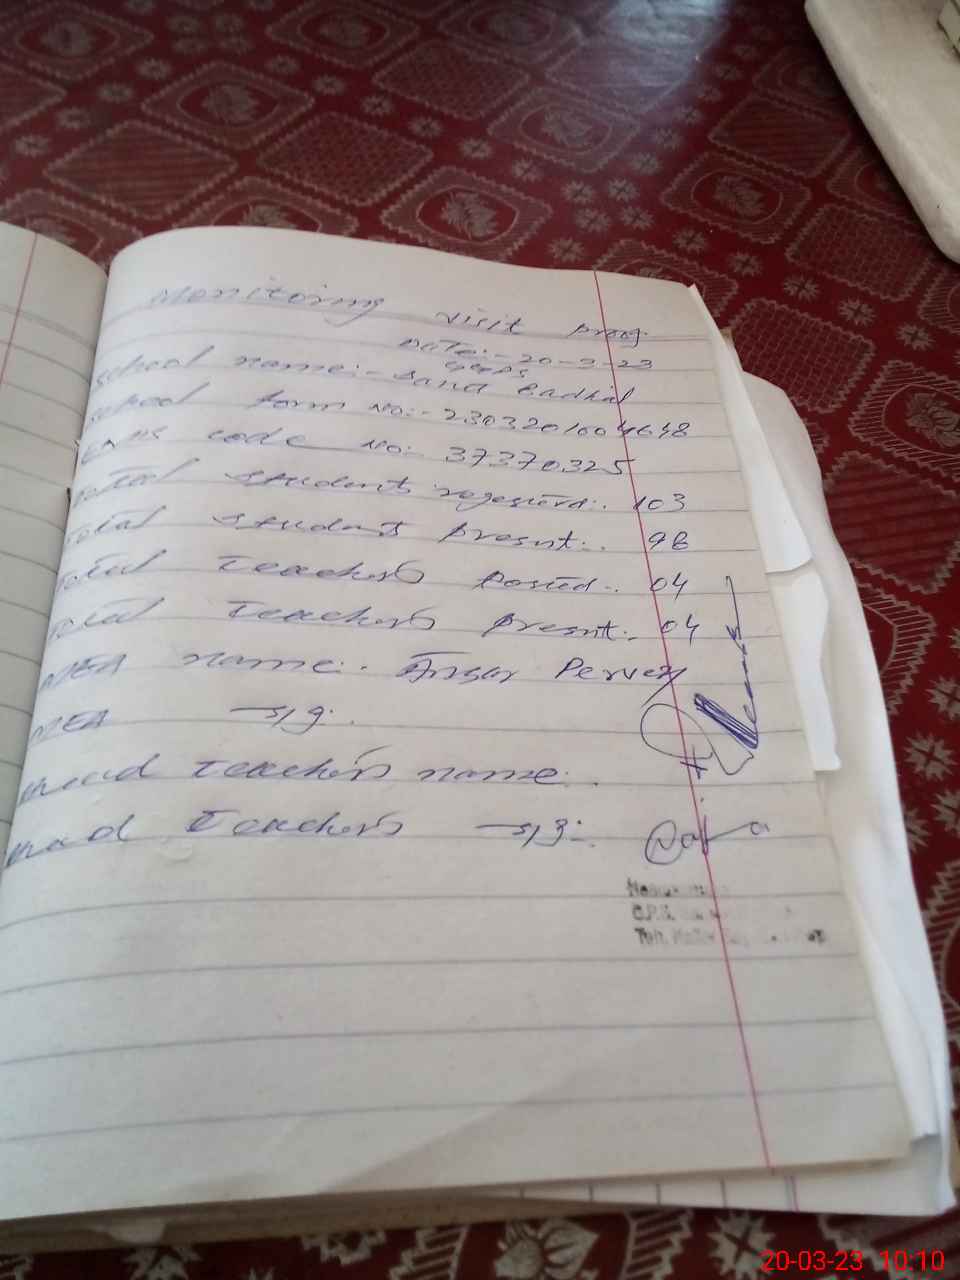 Monitoring visit proof
Date:- 20-3-23
GGPS
School name:- Sand Badhal
School form No:- 2303201004648
EMIS code No: 37370325
Total students regesterd:. 103
Total students presnt:. 98
Total Teachers Posted:. 04
Total Teachers present:. 04
MEA name:. Ansar Pervez
MEA sig:.
Head Teachers name:.
Head Teachers sig:.
G.P.S.
Teh.
20-03-23 10:10